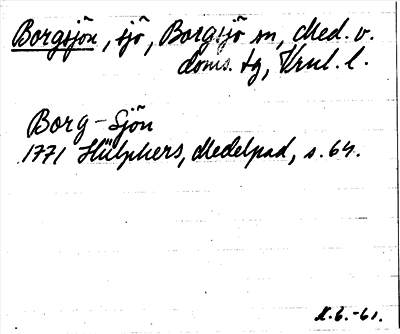 Borgsjön, sjö, Borgsjö sn, Med. v.
doms. tg, Vrnl. l.
Borg-Sjön
1771 Hülphers, Medelpad, s. 64.
M.6.-61.